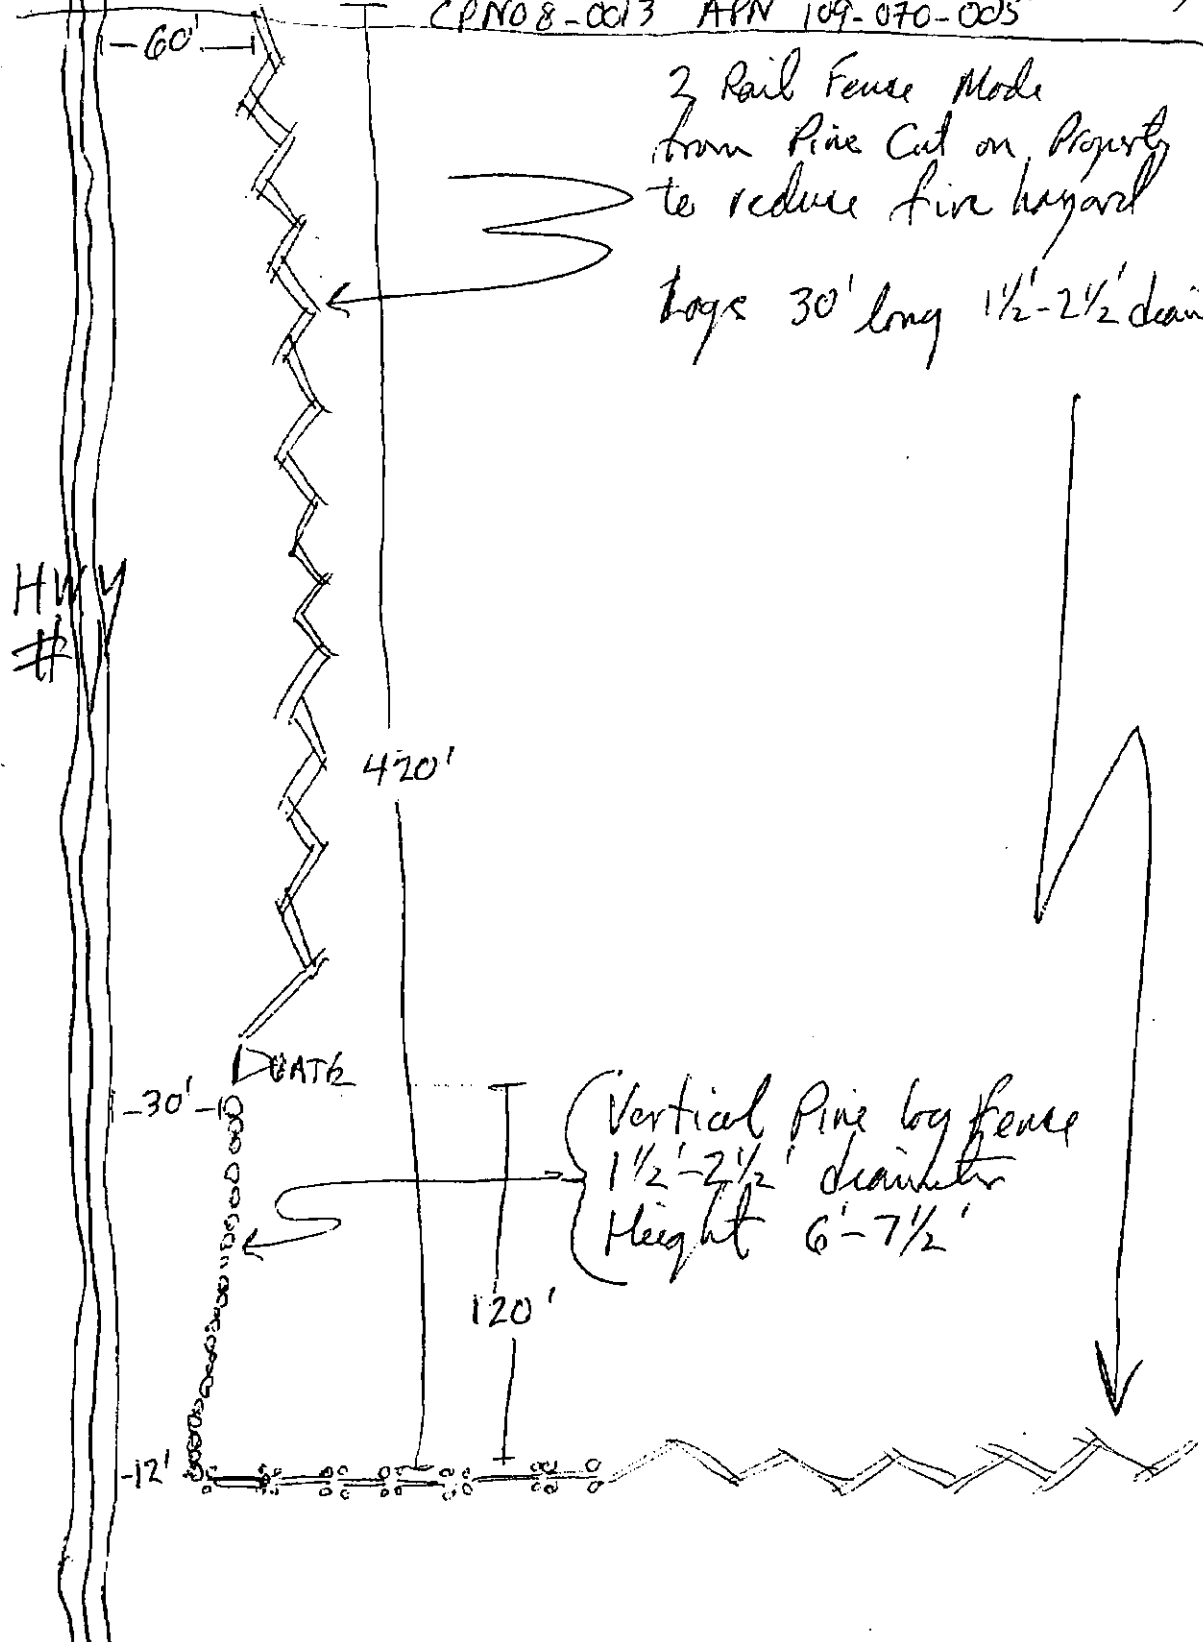 CPN08-0013 APN 109-070-005
60'
2 Rail Fense Made
from Pine Cut on Property
to reduce fire hazard
Logs 30' long 1½'-2½' diam
HWY
#
420'
GATE
30'
Vertical Pine log fense
1½'-2½' diameter
Height 6'-7½'
120'
12'